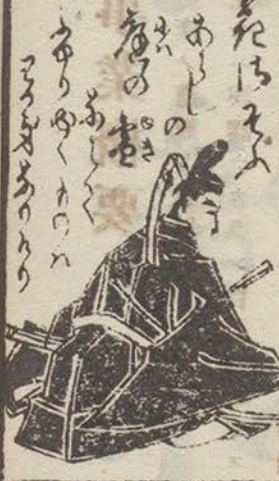 花さそふ
あらしの
庭の雪
ならで
ふりゆくものハ
わが身なりけり